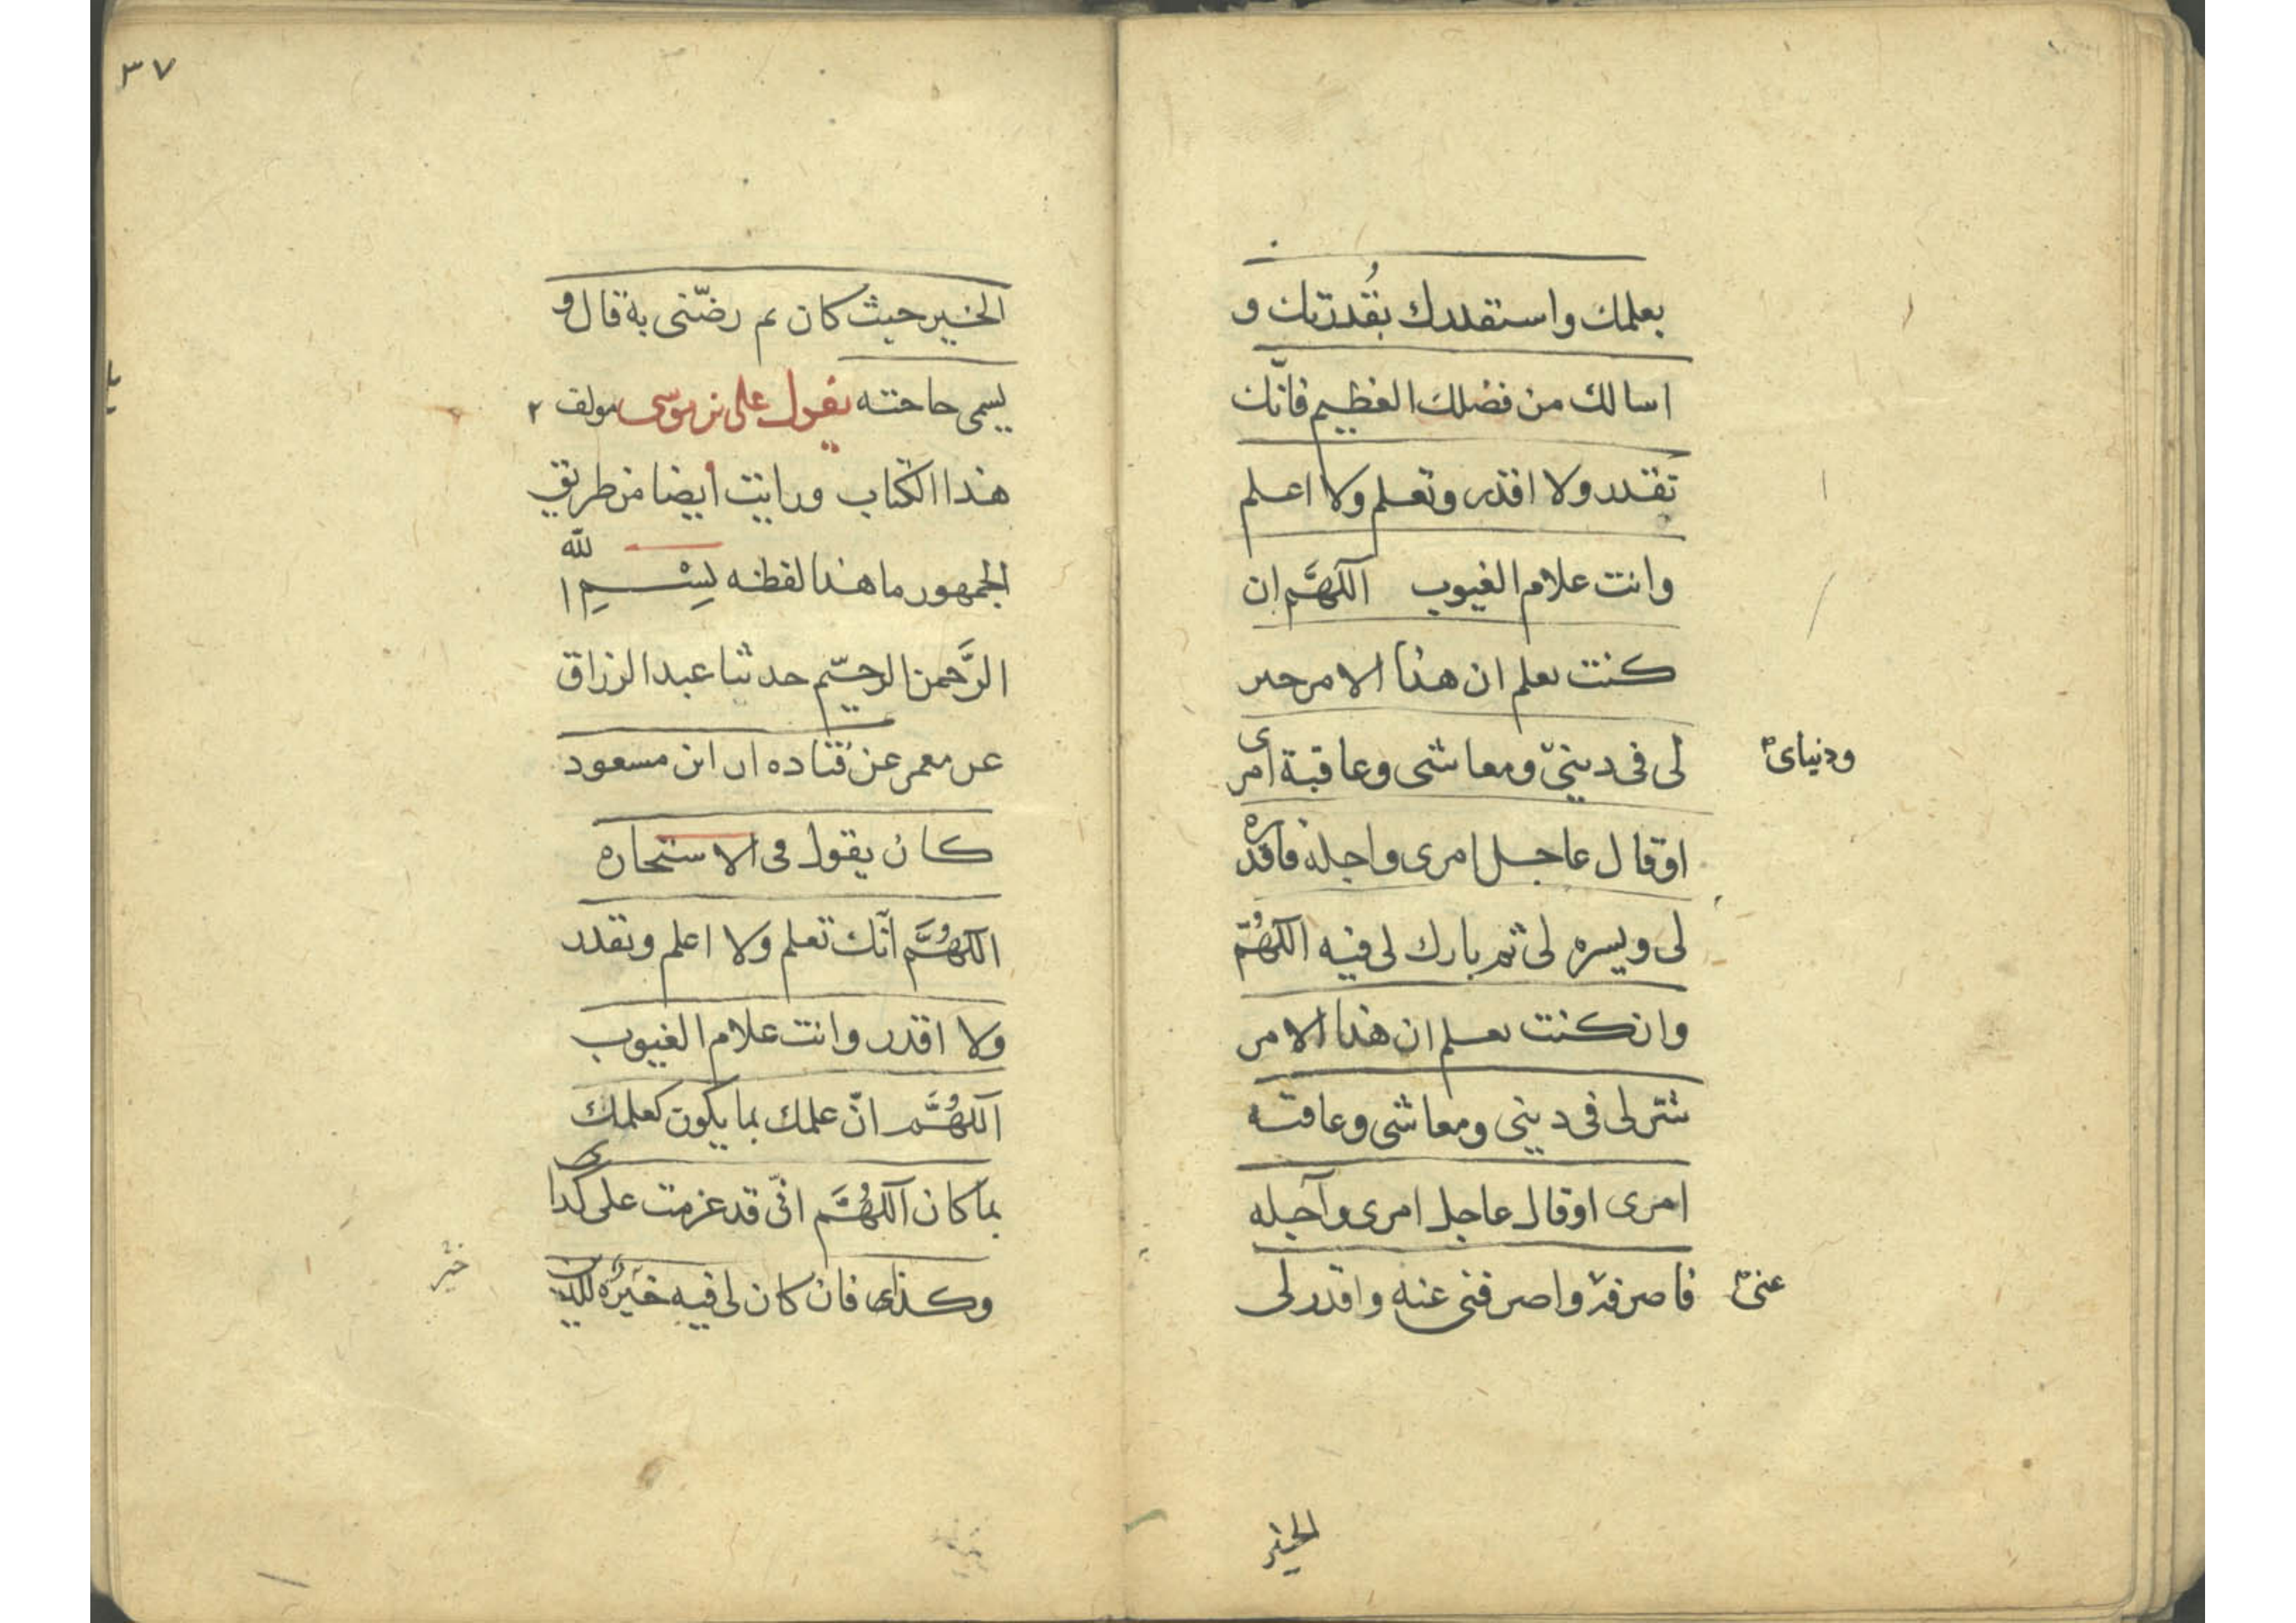 بعلمك واستقدرك بقُدرتك و
اسالك من فضلك العظيم فانّك
تقدر ولا اقدر وتعلم ولا اعلم
وانت علام الغيوب اللهَّم ان
كنت تعلم ان هذا الامر خير
لى فى دينى ومعاشى وعاقبة امرى
ودنياى
اوقال عاجل امرى واجله فاقدره
لى ويسره لى ثم بارك لى فيه اللهُمّ
وان كنت تعلم ان هذا الامر
شر لى فى دينى ومعاشى وعاقبه
امرى اوقال عاجل امرى وآجله
فاصرفه واصرفنى عنه واقدر لى
عنى
الخير
٣٧
الخير حيث كان ثم رضّنى به قال و
يسمى حاجته يقول على بن موسى مولف
هذا الكتاب ورايت ايضا من طريق
الجمهور ما هذا لفظه بِسْمِ الله
الرَّحمن الرحيّم حدثنا عبد الرزاق
عن معمر عن قتاده ان ابن مسعود
كان يقول فى الاستخاره
اللهُمَّ انّك تعلم ولا اعلم وتقدر
ولا اقدر وانت علام الغيوب
اللهُمَّ انّ علمك بما يكون كعلمك
بما كان اللهُمَّ انّى قد عزمت على كذا
وكذا فان كان لى فيه خَيرُه
خير